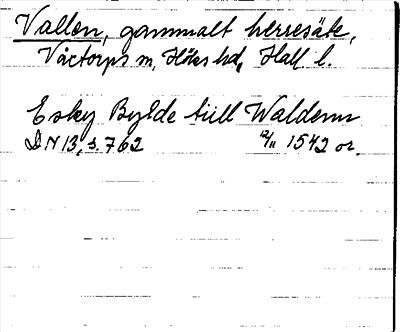 Vallen, gammalt herresäte,
Våxtorps sn, Höks hd, Hall. l.
Esky Bylde till Waldenn
DN 13, s. 762 12/11 1542 or.